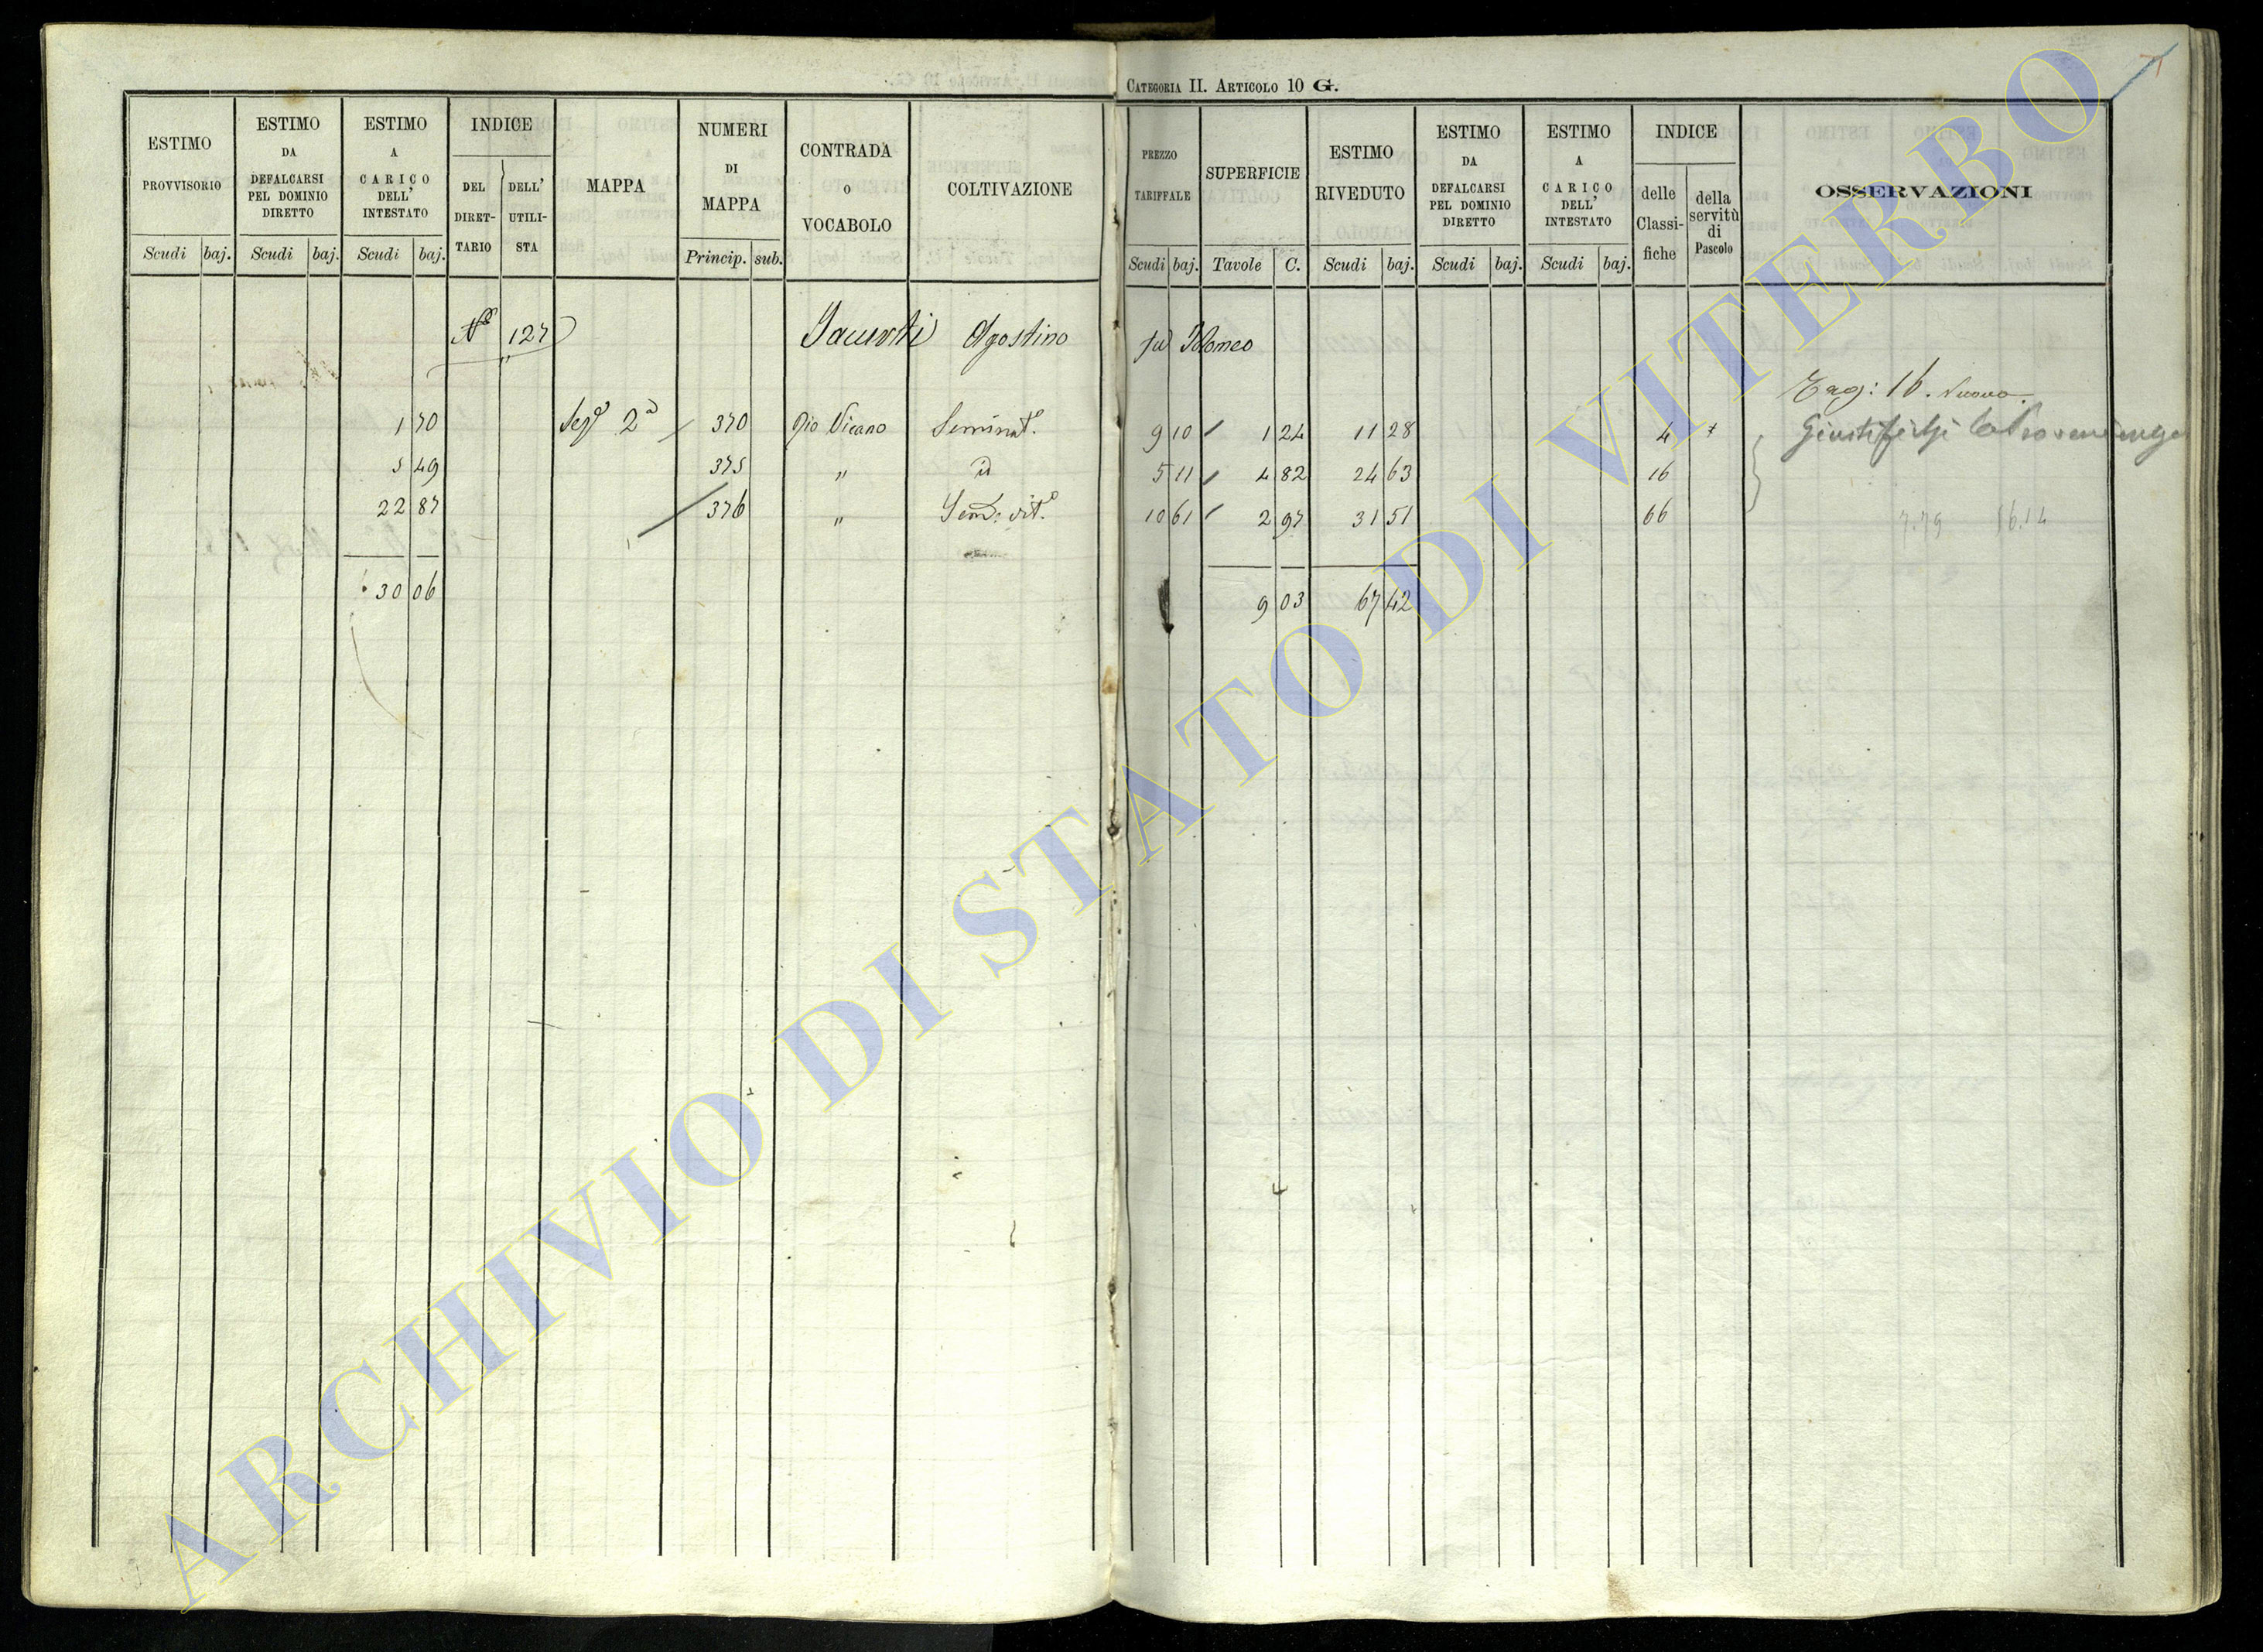 CATEGORIA II. ARTICOLO 10 G.
ESTIMO PROVVISORIO
ESTIMO DA DEFALCARSI PEL DOMINIO DIRETTO
ESTIMO A CARICO DELL' INTESTATO
INDICE
DEL DIRETTARIO
DELL' UTILISTA
MAPPA
NUMERI DI MAPPA
CONTRADA O VOCABOLO
COLTIVAZIONE
Scudi baj. Scudi baj. Scudi baj. Princip. sub.
PREZZO TARIFFALE
SUPERFICIE
ESTIMO RIVEDUTO
ESTIMO DA DEFALCARSI PEL DOMINIO DIRETTO
ESTIMO A CARICO DELL' INTESTATO
INDICE
delle Classifiche
della servitù di Pascolo
OSSERVAZIONI
Scudi baj. Tavole C. Scudi baj. Scudi baj. Scudi baj.
127 Agostino fu
16. Nuovo
1 70 Sez 2ª 370 Rio Vicano Seminat. 9 10 1 24 11 28 4
5 49 375 " id 5 11 4 82 24 63 16
22 87 376 " Sem. vit. 10 61 2 97 31 51 66 7.79 16.14
30 06 9 03 67 42
ARCHIVIO DI STATO DI VITERBO